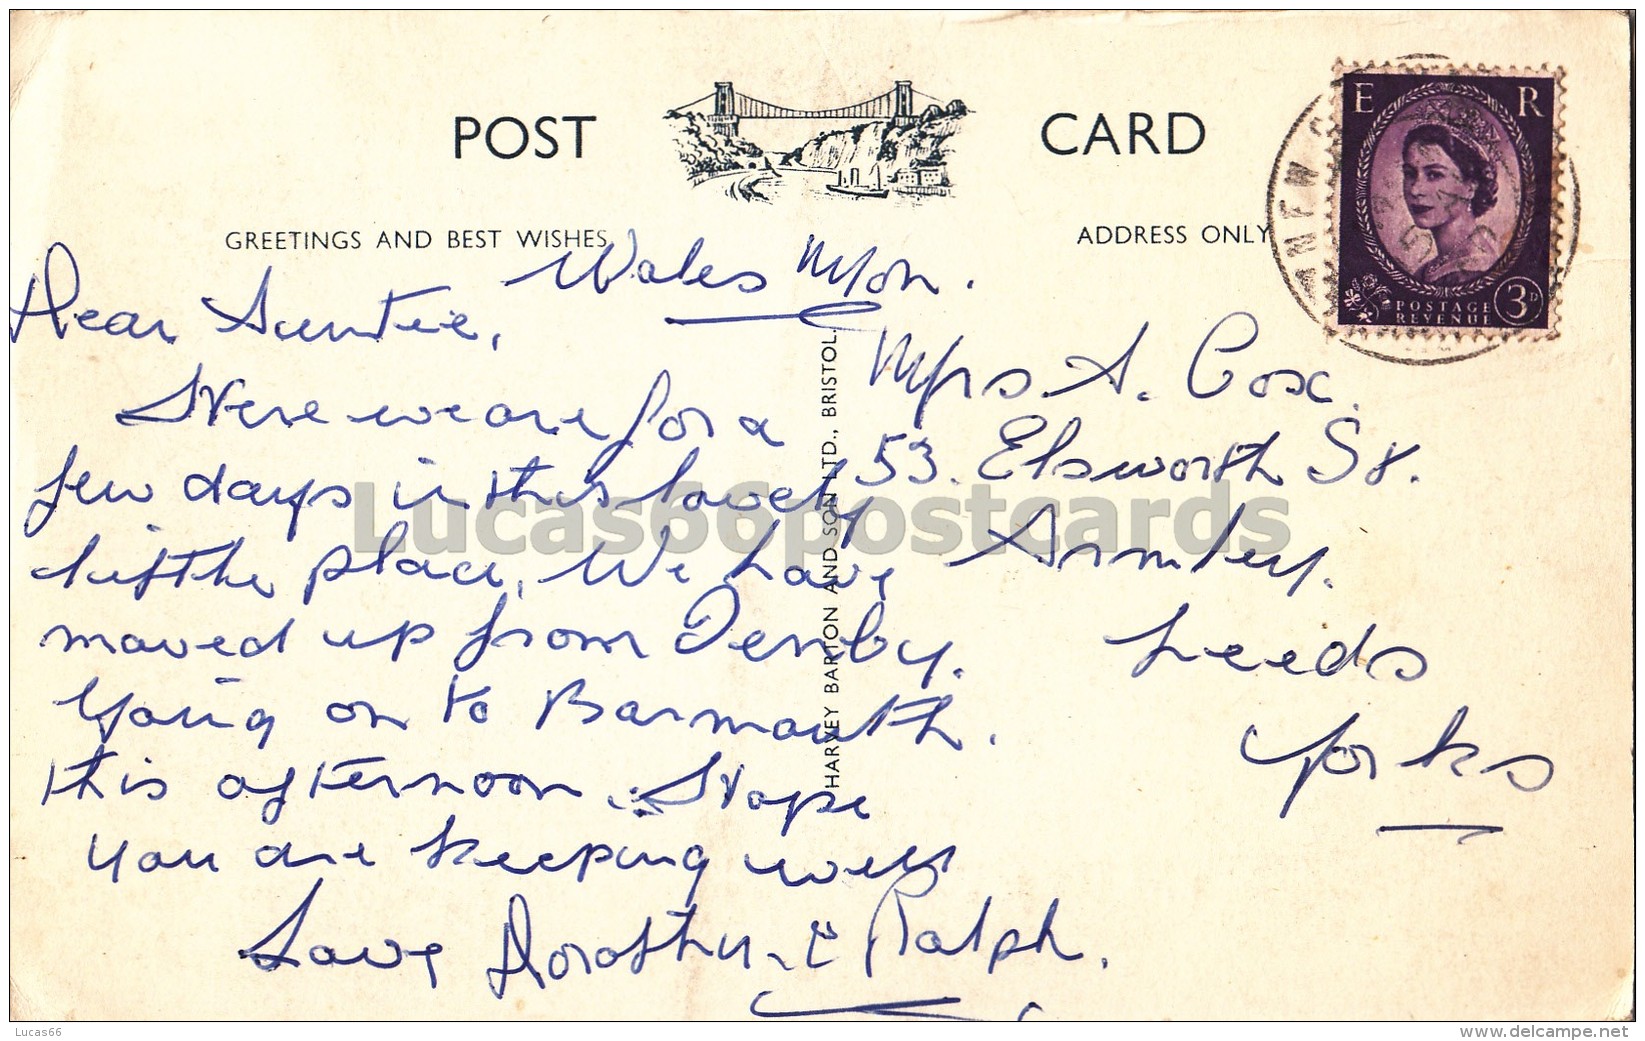 POST CARD
GREETINGS AND BEST WISHES
ADDRESS ONLY
Wales Mon.
Dear Auntie,
Here we are for a
few days in this lovely
little place, We have
moved up from Tenby.
Going on to Barmouth.
this afternoon. Hope
you are keeping well
Love Dorothy & Ralph.
HARVEY BARTON AND SON LTD., BRISTOL.
Mrs A. Cox.
53. Elsworth St.
Armley.
Leeds
Yorks
E R
POSTAGE
REVENUE
3D
Lucas66postcards
Lucas66
www.delcampe.net